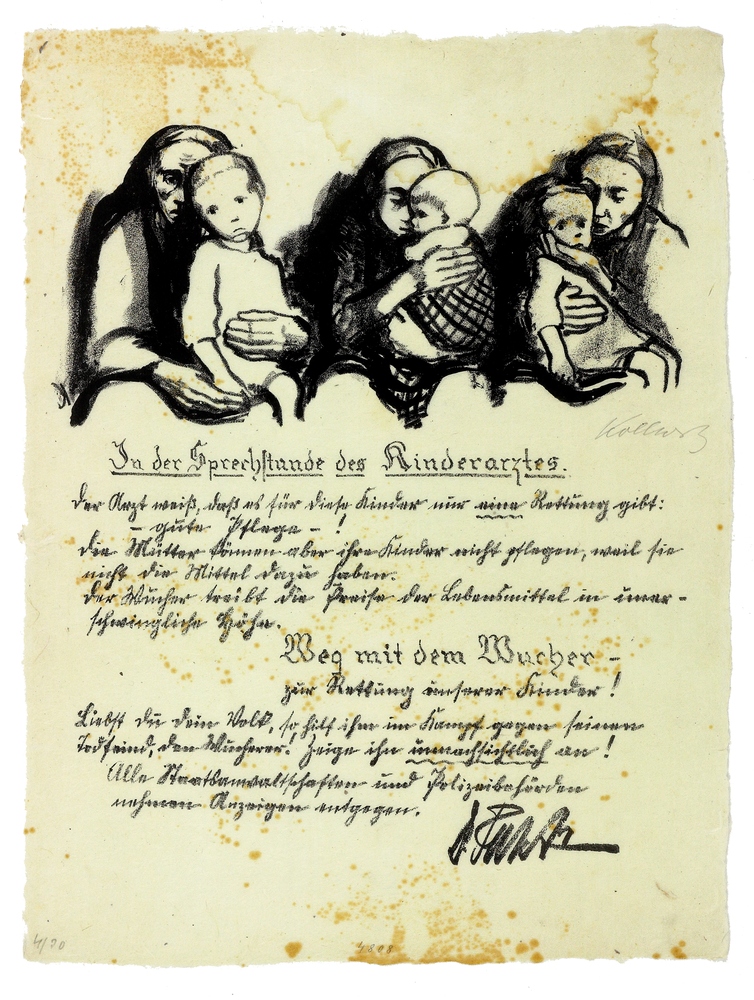 Kollwitz
In der Sprechstunde des Kinderarztes.
Der Arzt weiß, daß es für diese Kinder nur eine Rettung gibt:
– gute Pflege – !
Die Mütter können aber ihre Kinder nicht pflegen, weil sie
nicht die Mittel dazu haben.
Der Wucher treibt die Preise der Lebensmittel in uner-
schwingliche Höhe.
Weg mit dem Wucher –
zur Rettung unserer Kinder!
Liebst du dein Volk, so hilf ihm im Kampf gegen seinen
Todfeind, den Wucherer! Zeige ihn unnachsichtlich an!
Alle Staatsanwaltschaften und Polizeibehörden
nehmen Anzeigen entgegen.
4/30
4808